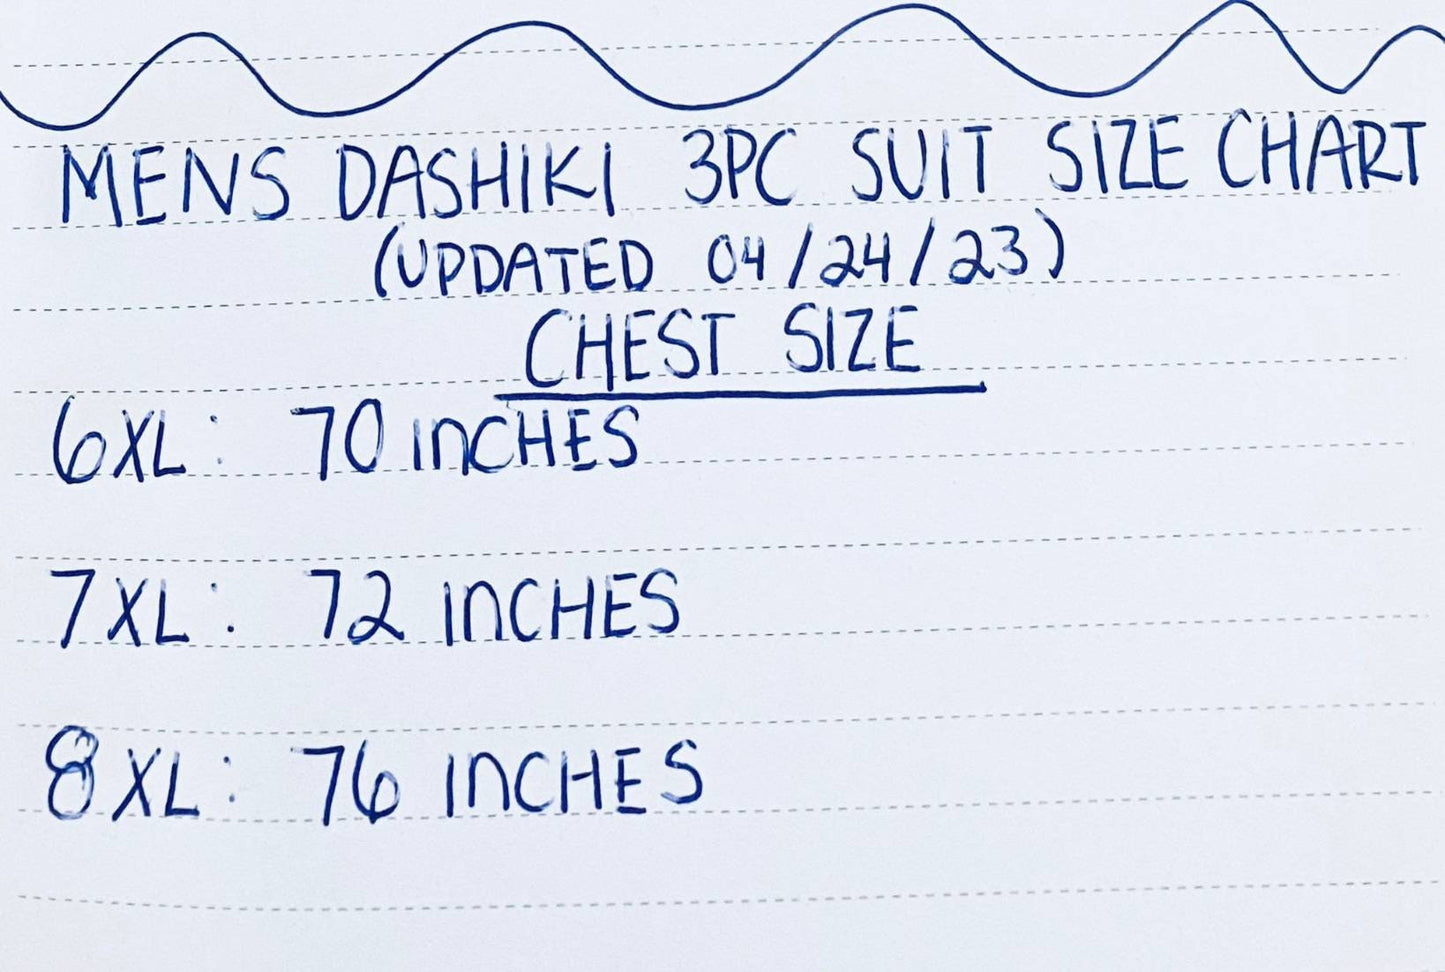 MENS DASHIKI 3PC SUIT SIZE CHART
(UPDATED 04/24/23)
CHEST SIZE
6XL: 70 INCHES
7XL: 72 INCHES
8XL: 76 INCHES